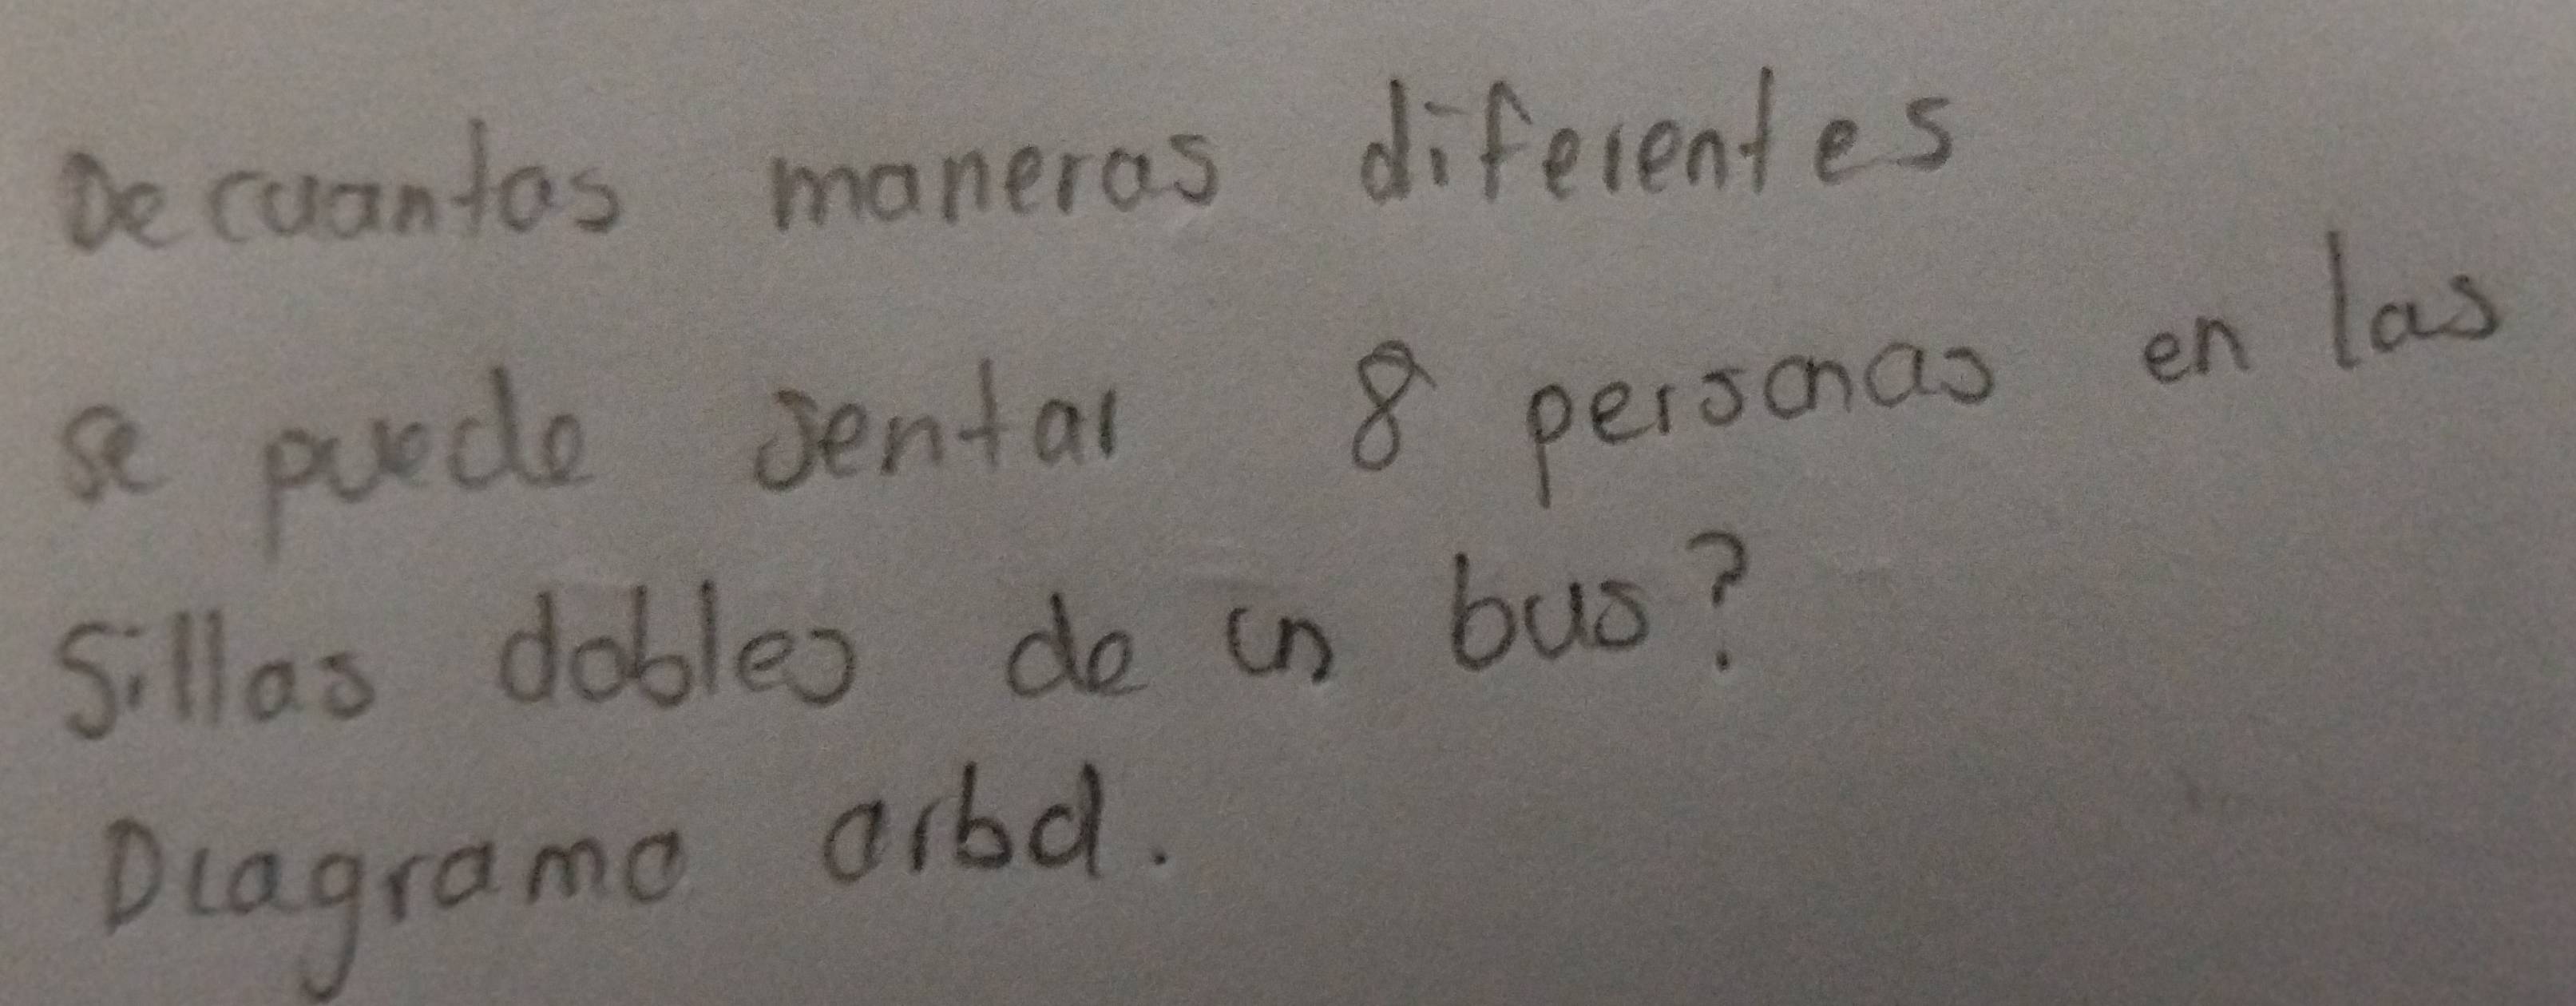 De cuantas maneras diferentes
se puede sentar 8 personas en las
Sillas dobles de un bus?
Diagrama arbol.